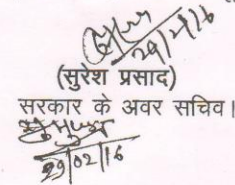 29/2/16
(सुरेश प्रसाद)
सरकार के अवर सचिव।
29/02/16